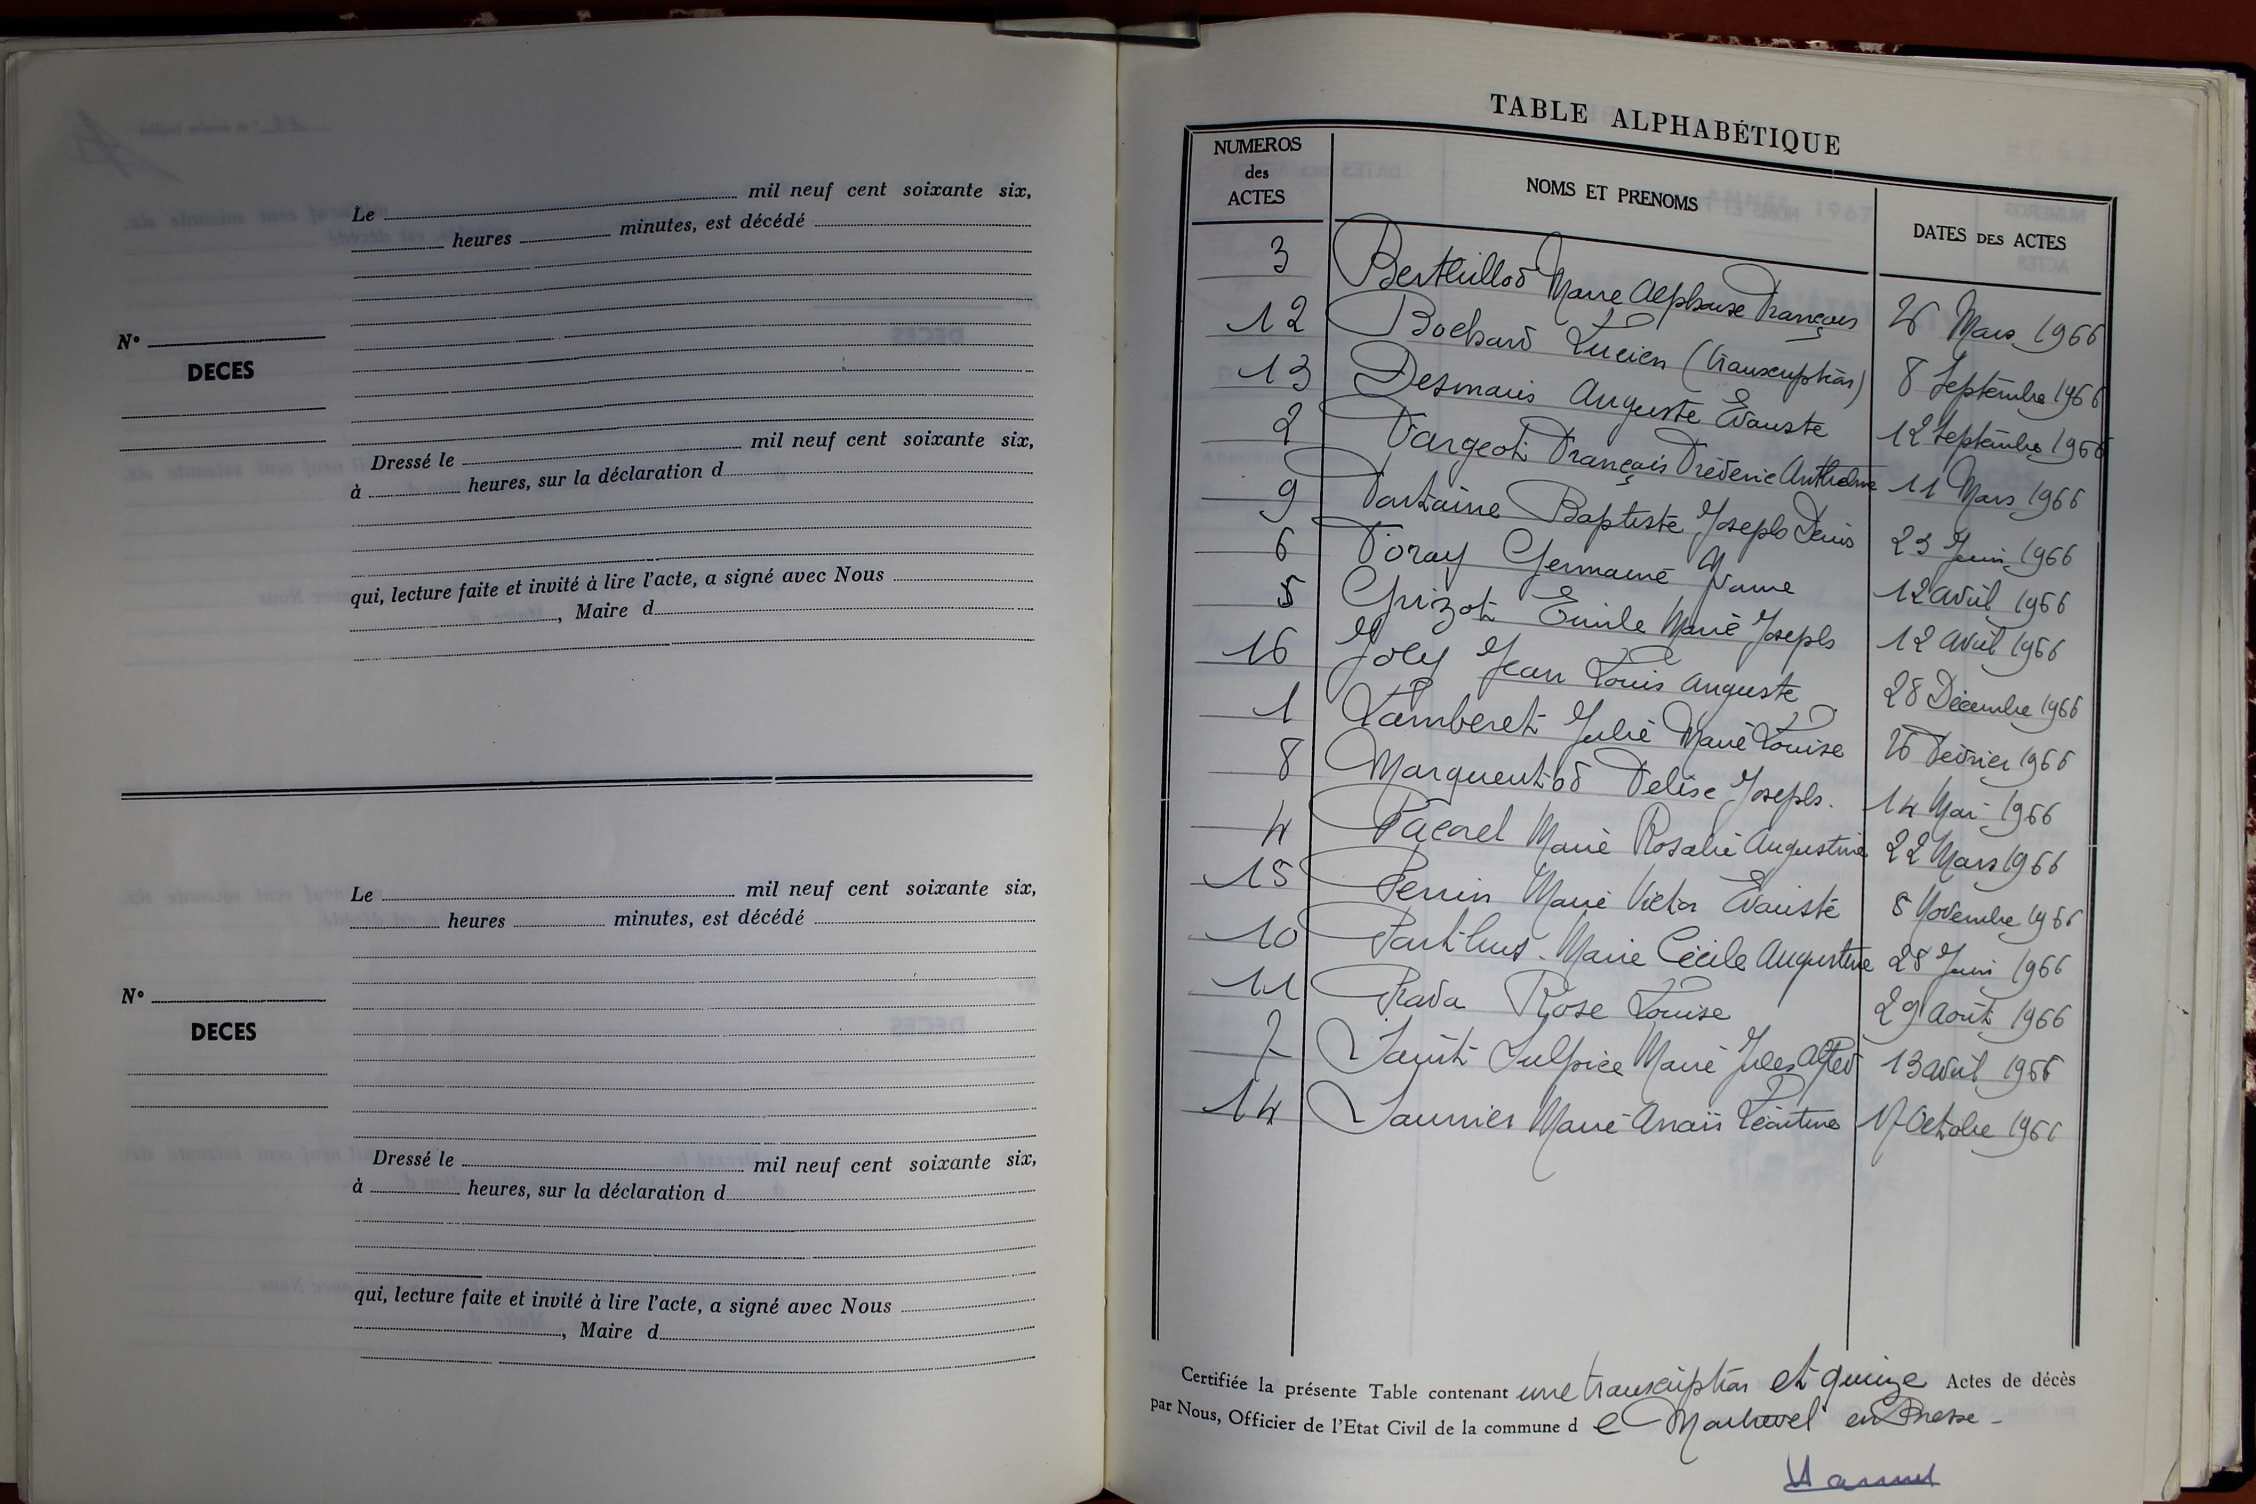 Le mil neuf cent soixante six,
heures minutes, est décédé
N°
DECES
Dressé le mil neuf cent soixante six,
à heures, sur la déclaration d
qui, lecture faite et invité à lire l'acte, a signé avec Nous
, Maire d
Le mil neuf cent soixante six,
heures minutes, est décédé
N°
DECES
Dressé le mil neuf cent soixante six,
à heures, sur la déclaration d
qui, lecture faite et invité à lire l'acte, a signé avec Nous
, Maire d
TABLE ALPHABÉTIQUE
NUMEROS des ACTES NOMS ET PRENOMS DATES DES ACTES
3 Berthillod Marie Alphonse François 26 Mars 1966
12 Bochard Lucien (transcription) 8 Septembre 1966
13 Desmaris Auguste Evariste 12 Septembre 1966
2 Fargeot François Frédéric Anthelme 11 Mars 1966
9 Fontaine Baptiste Joseph Denis 23 Juin 1966
6 Foray Germaine 12 avril 1966
5 Grizot Emile Marie Joseph 12 avril 1966
16 Joly Jean Louis Auguste 28 Décembre 1966
1 Lamberet Julie Marie Louise 26 Février 1966
8 Joseph. 14 Mai 1966
4 Pacorel Marie Rosalie Augustine 22 Mars 1966
15 Perrin Marie Victor Evariste 8 Novembre 1966
10 Marie Cécile Augustine 28 Juin 1966
11 Rose Louise 29 août 1966
7 Saint Sulpice Marie Jules Alfred 13 avril 1966
14 Saunier Marie Anaïs Léontine 17 Octobre 1966
Certifiée la présente Table contenant une transcription et quinze Actes de décès
par Nous, Officier de l'Etat Civil de la commune d e en Bresse -